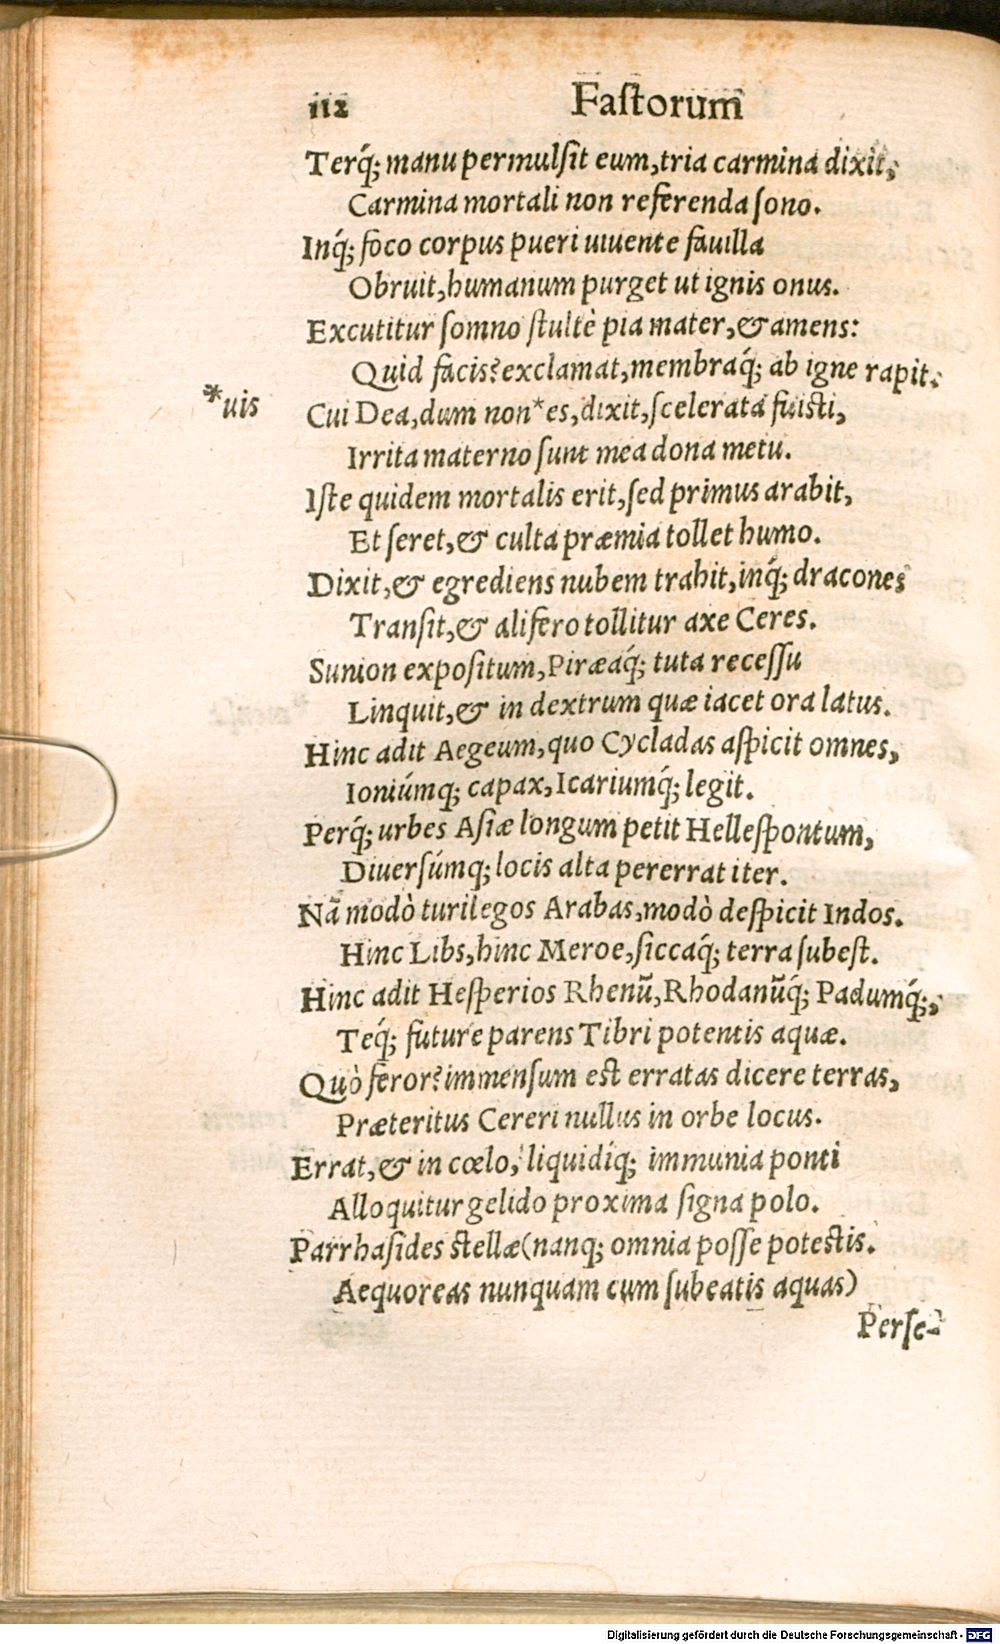 112 Faſtorum
Terq́; manu permulſit eum, tria carmina dixit,
Carmina mortali non referenda ſono.
Inq́; foco corpus pueri uiuente fauilla
Obruit, humanum purget ut ignis onus.
Excutitur ſomno ſtultè pia mater, & amens:
Quid facis? exclamat, membraq́; ab igne rapit.
*uis
Cui Dea, dum non* es, dixit, ſcelerata fuiſti,
Irrita materno ſunt mea dona metu.
Iſte quidem mortalis erit, ſed primus arabit,
Et ſeret, & culta præmia tollet humo.
Dixit, & egrediens nubem trahit, inq́; dracones
Tranſit, & alifero tollitur axe Ceres.
Sunion expoſitum, Piræaq́; tuta receſſu
Linquit, & in dextrum quæ iacet ora latus.
Hinc adit Aegeum, quo Cycladas aſpicit omnes,
Ioniúmq; capax, Icariumq́; legit.
Perq́; urbes Aſiæ longum petit Helleſpontum,
Diuerſúmq; locis alta pererrat iter.
Nā modò turilegos Arabas, modò deſpicit Indos.
Hinc Libs, hinc Meroe, ſiccaq́; terra ſubeſt.
Hinc adit Heſperios Rhenū, Rhodanūq́; Padumq́;,
Teq́; future parens Tibri potentis aquæ.
Quò feror? immenſum eſt erratas dicere terras,
Præteritus Cereri nullus in orbe locus.
Errat, & in cœlo, liquidíq; immunia ponti
Alloquitur gelido proxima ſigna polo.
Parrhaſides ſtellæ (nanq; omnia poſſe poteſtis.
Aequoreas nunquam cum ſubeatis aquas)
Perſe-
Digitalisierung gefördert durch die Deutsche Forschungsgemeinschaft - DFG